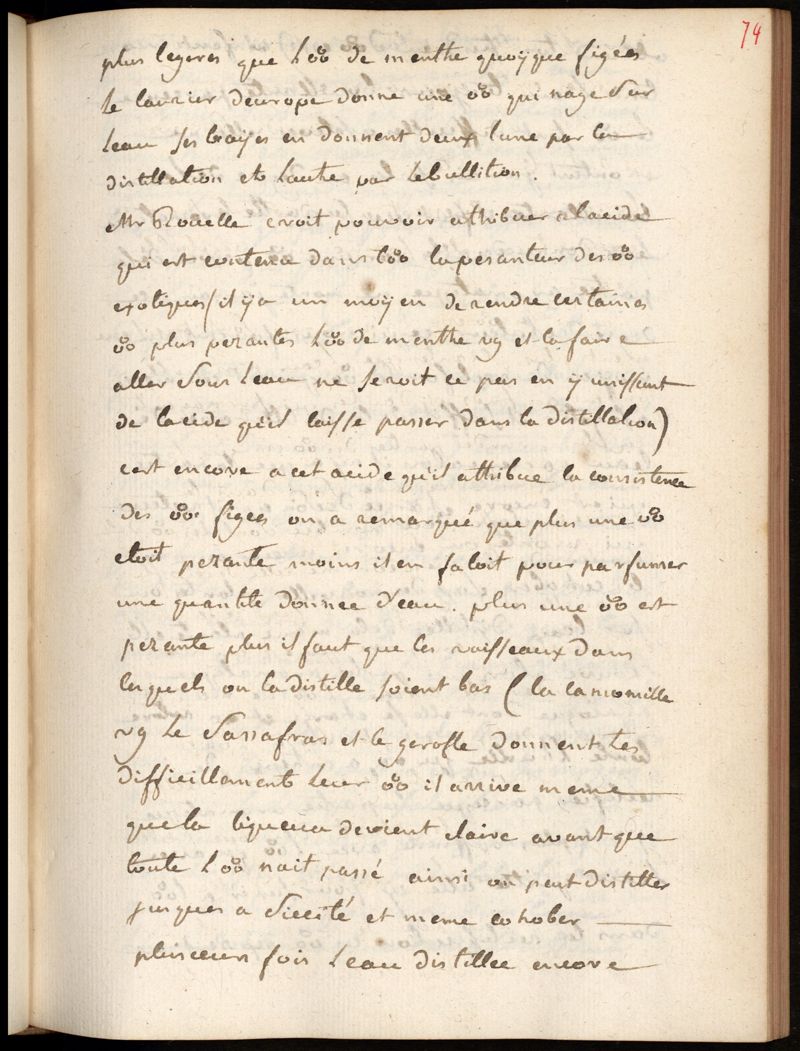 74
plus legeres que l'o^oo de menthe quoyque figées
le laurier deurope donne une o^oo qui nage sur
leau ses bayes en donnent deux lune par la
distillation et lautre par lebullition.
Mr Rouelle croit pouvoir attribuer a lacide
qui est contenu dans lo^oo la pesanteur des o^oo
exotiques (il y a un moyen de rendre certaines
o^oo plus pezantes lo^oo de menthe vg et la faire
aller sous leau ne seroit ce pas en y unissant
de lacide qu'il laisse passer dans la distillation)
cest encore a cet acide qu'il attribue la consistence
des o^oo figees on a remarqué que plus une o^oo
etoit pezante moins il en faloit pour parfumer
une quantité donnee d'eau. plus une o^oo est
pezante plus il faut que les vaisseaux dans
lesquels on la distille soient bas (la camomille
vg le sassafras et le gerofle donnent tes
difficillement leur o^oo il arrive meme
que la liqueur devient claire avant que
toute lo^oo nait passé ainsi on peut distiller
jusques a siccité et meme cohober
plusieurs fois leau distillee encore